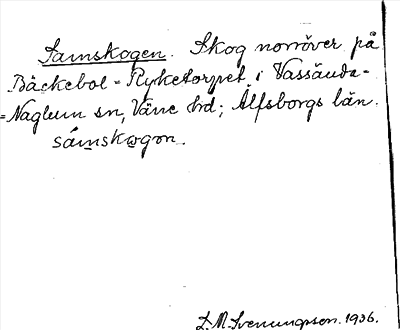 Samskogen. Skog norröver på
Bäckebol = Ryketorpet i Vassända=
=Naglum sn, Väne hd; Älfsborgs län.
sámskωgon.
L. M. Svenungsson. 1936.